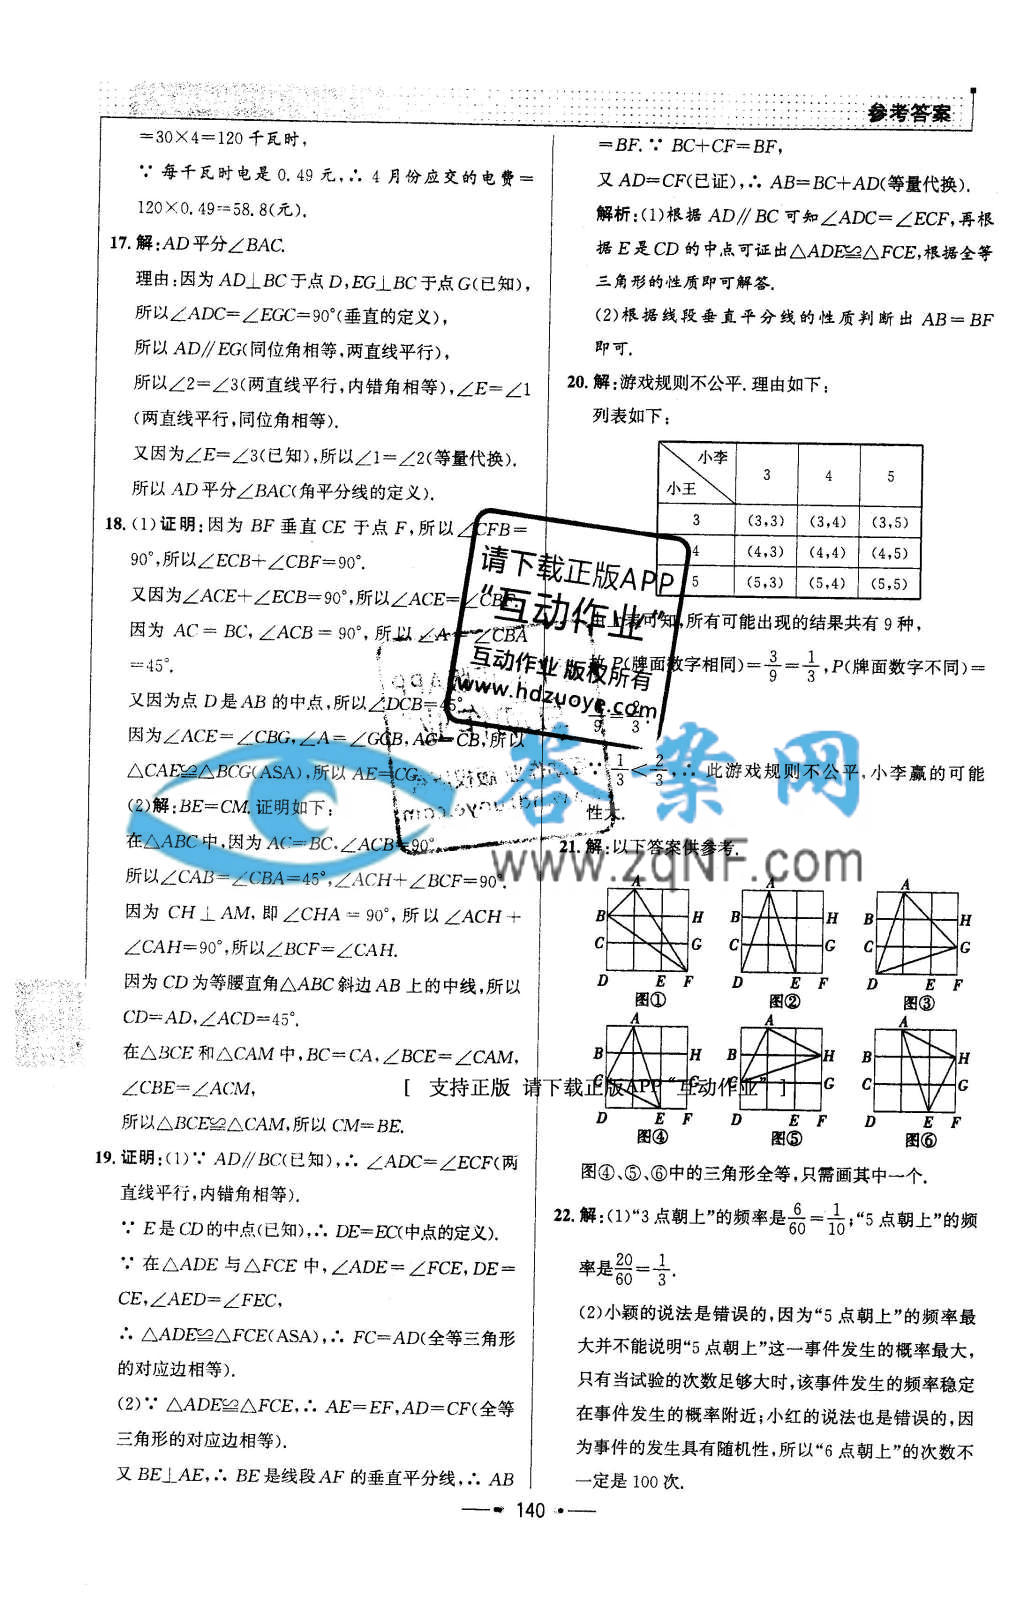 参考答案
=30×4=120 千瓦时,
∵ 每千瓦时电是 0.49 元,∴ 4 月份应交的电费=
120×0.49=58.8(元).
17. 解:AD平分∠BAC.
理由:因为 AD⊥BC于点D,EG⊥BC于点G(已知),
所以∠ADC=∠EGC=90°(垂直的定义),
所以 AD∥EG(同位角相等,两直线平行),
所以∠2=∠3(两直线平行,内错角相等),∠E=∠1
(两直线平行,同位角相等).
又因为∠E=∠3(已知),所以∠1=∠2(等量代换).
所以 AD平分∠BAC(角平分线的定义).
18. (1)证明:因为 BF 垂直 CE 于点 F,所以∠CFB=
90°,所以∠ECB+∠CBF=90°.
又因为∠ACE+∠ECB=90°,所以∠ACE=∠CBF.
因为 AC = BC, ∠ACB = 90°, 所以 ∠A = ∠CBA
=45°.
又因为点 D 是 AB 的中点,所以∠DCB=45°.
因为∠ACE=∠CBG,∠A=∠GCB,AC=CB,所以
△CAE≌△BCG(ASA),所以 AE=CG.
(2)解:BE=CM.证明如下:
在△ABC 中,因为 AC=BC,∠ACB=90°
所以∠CAB=∠CBA=45°,∠ACH+∠BCF=90°.
因为 CH⊥AM, 即∠CHA = 90°, 所以∠ACH +
∠CAH=90°,所以∠BCF=∠CAH.
因为 CD为等腰直角△ABC 斜边 AB 上的中线,所以
CD=AD,∠ACD=45°.
在△BCE 和△CAM 中,BC=CA,∠BCE=∠CAM,
∠CBE=∠ACM,
所以△BCE≌△CAM,所以 CM=BE.
19. 证明:(1)∵ AD∥BC(已知),∴ ∠ADC=∠ECF(两
直线平行,内错角相等).
∵ E是CD的中点(已知),∴ DE=EC(中点的定义).
∵ 在△ADE 与△FCE 中,∠ADE=∠FCE,DE=
CE,∠AED=∠FEC,
∴ △ADE≌△FCE(ASA),∴ FC=AD(全等三角形
的对应边相等).
(2)∵ △ADE≌△FCE,∴ AE=EF,AD=CF(全等
三角形的对应边相等).
又 BE⊥AE,∴ BE是线段 AF 的垂直平分线,∴ AB
=BF.∵ BC+CF=BF,
又 AD=CF(已证),∴ AB=BC+AD(等量代换).
解析:(1)根据 AD∥BC 可知∠ADC=∠ECF,再根
据 E是 CD的中点可证出△ADE≌△FCE,根据全等
三角形的性质即可解答.
(2)根据线段垂直平分线的性质判断出 AB=BF
即可.
20. 解:游戏规则不公平.理由如下:
列表如下:
小李 3 4 5
小王
3 (3,3) (3,4) (3,5)
4 (4,3) (4,4) (4,5)
5 (5,3) (5,4) (5,5)
由上表可知,所有可能出现的结果共有 9 种,
故 P(牌面数字相同)=3/9=1/3,P(牌面数字不同)=
6/9=2/3.
∵ 1/3<2/3,∴ 此游戏规则不公平,小李赢的可能
性大.
21. 解:以下答案供参考.
A A A
B H B H B H
C G C G C G
D E F D E F D E F
图① 图② 图③
A A A
B H B H B H
C G C G C G
D E F D E F D E F
图④ 图⑤ 图⑥
图④、⑤、⑥中的三角形全等,只需画其中一个.
22. 解:(1)“3 点朝上”的频率是6/60=1/10;“5 点朝上”的频
率是20/60=1/3.
(2)小颖的说法是错误的,因为“5 点朝上”的频率最
大并不能说明“5 点朝上”这一事件发生的概率最大,
只有当试验的次数足够大时,该事件发生的频率稳定
在事件发生的概率附近;小红的说法也是错误的,因
为事件的发生具有随机性,所以“6 点朝上”的次数不
一定是 100 次.
140
请下载正版APP
“互动作业”
互动作业 版权所有
www.hdzuoye.com
答案网
www.zqNF.com
[ 支持正版 请下载正版APP“互动作业” ]